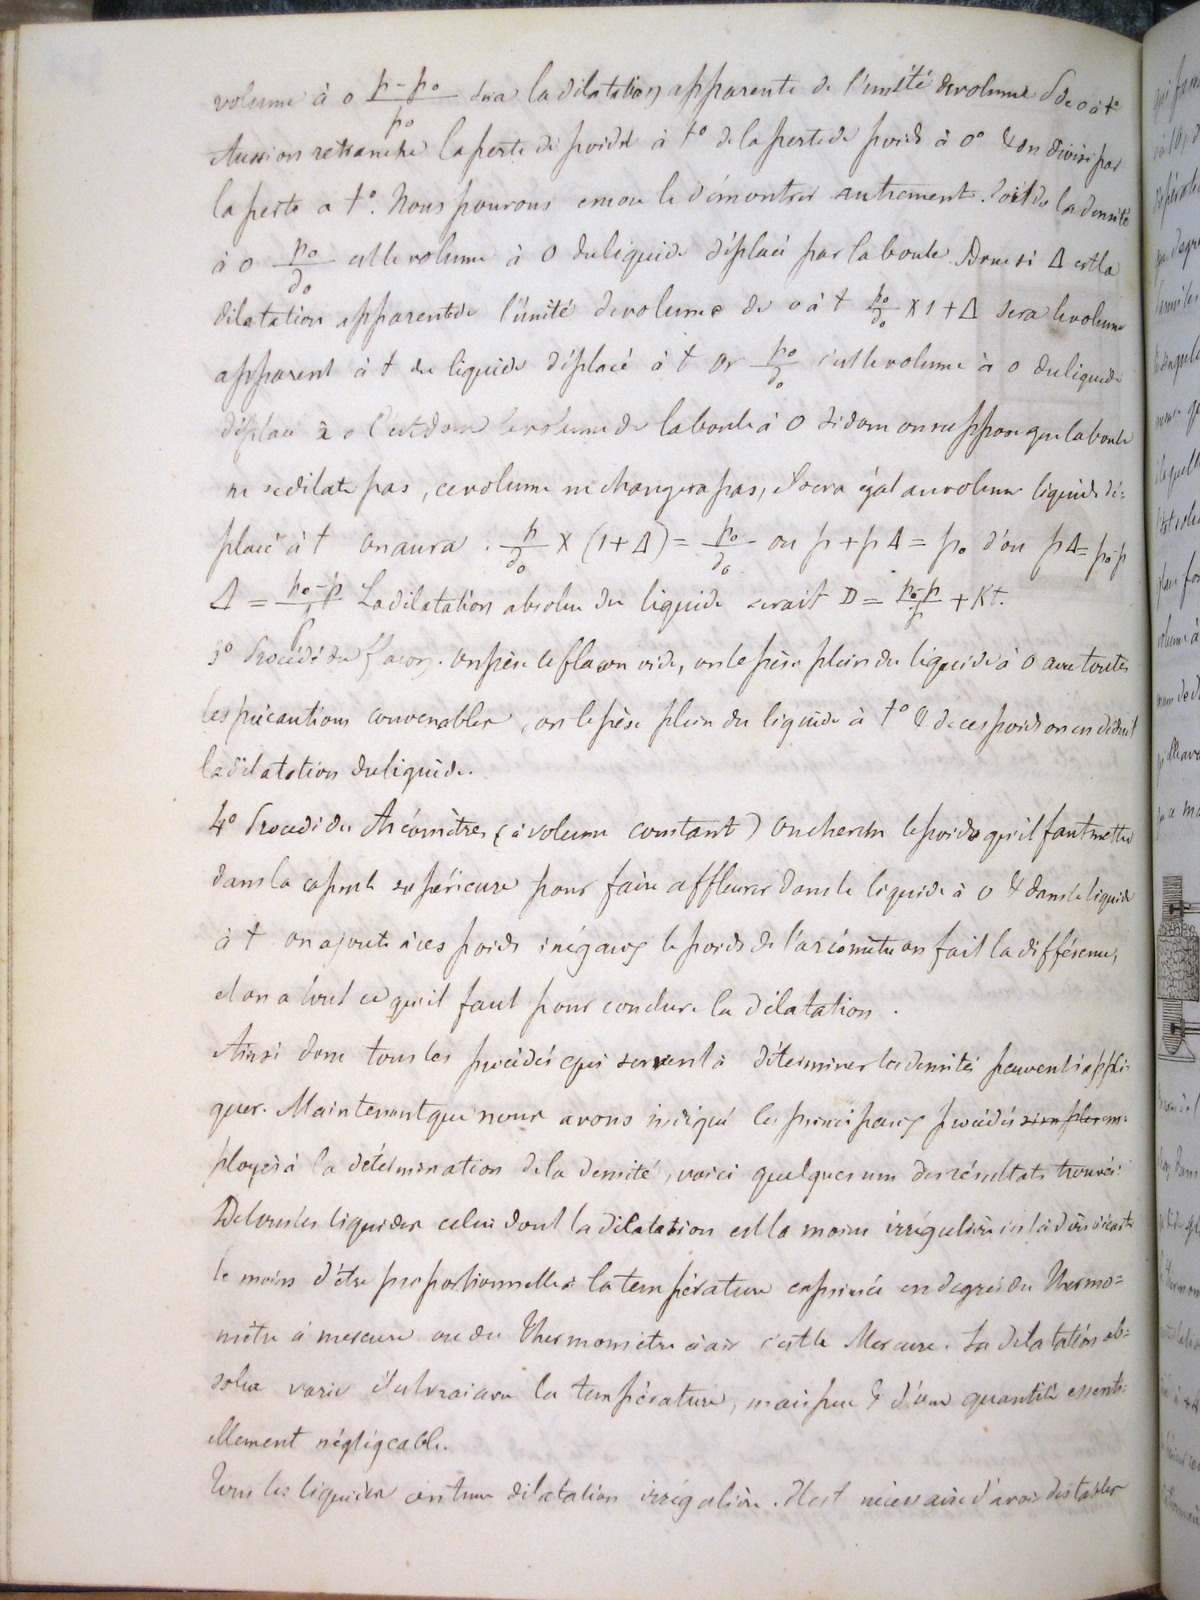 volume à 0 p-p₀/p₀ sera la dilatation apparente de l'unité de volume de 0 à t°
Aussi on retranche la perte de poids à t° de la perte de poids à 0° & on divise par
la perte à t°. Nous pourons encore le démontrer autrement. Soit d₀ la densité
à 0 p₀/d₀ est le volume à 0 du liquide déplacé par la boule. Donc si Δ est la
dilatation apparente de l'unité de volume de 0 à t p₀/d₀ × 1+Δ sera le volume
apparent à t du liquide déplacé à t or p₀/d₀ c'est le volume à 0 du liquide
déplacé à 0 c'est donc le volume de la boule à 0 si donc on suppose que la boule
ne se dilate pas, ce volume ne changera pas, il sera égal au volume liquide dé=
placé à t on aura . p/d₀ × (1+Δ) = p₀/d₀ ou p+pΔ = p₀ d'ou pΔ = p₀-p
Δ = p₀-p/p La dilatation absolue du liquide serait D = p₀-p/p + Kt.
3° Procédé du flacon. on pèse le flacon vide, on le pèse plein du liquide à 0 avec toutes
les précautions convenables, on le pèse plein du liquide à t° & de ces poids on en déduit
la dilatation du liquide.
4° Procédé des Aréomètres (à volume constant) On cherche le poids qu'il faut mettre
dans la capsule supérieure pour faire affleurer dans le liquide à 0 & dans le liquide
à t on ajoute à ces poids inégaux le poids de l'aréomètre on fait la différence,
et on a tout ce qu'il faut pour conclure la dilatation .
Ainsi donc tous les procédés qui servent à déterminer les densités peuvent s'appli-
quer. Maintenant que nous avons indiqué les principaux procédés simples em-
ployés à la détermination de la densité, voici quelques uns des résultats trouvés:
De tous les liquides celui dont la dilatation est la moins irrégulière c'est à dire s'écarte
le moins d'être proportionnelle à la température exprimée en degrés du Thermo=
mètre à mercure ou du Thermomètre à air c'est le Mercure. La dilatation ab=
solue varie il est vrai avec la température, mais peu & d'une quantité essenti-
ellement négligeable.
Tous les liquides ont une dilatation irrégulière. Il est nécessaire d'avoir des tables